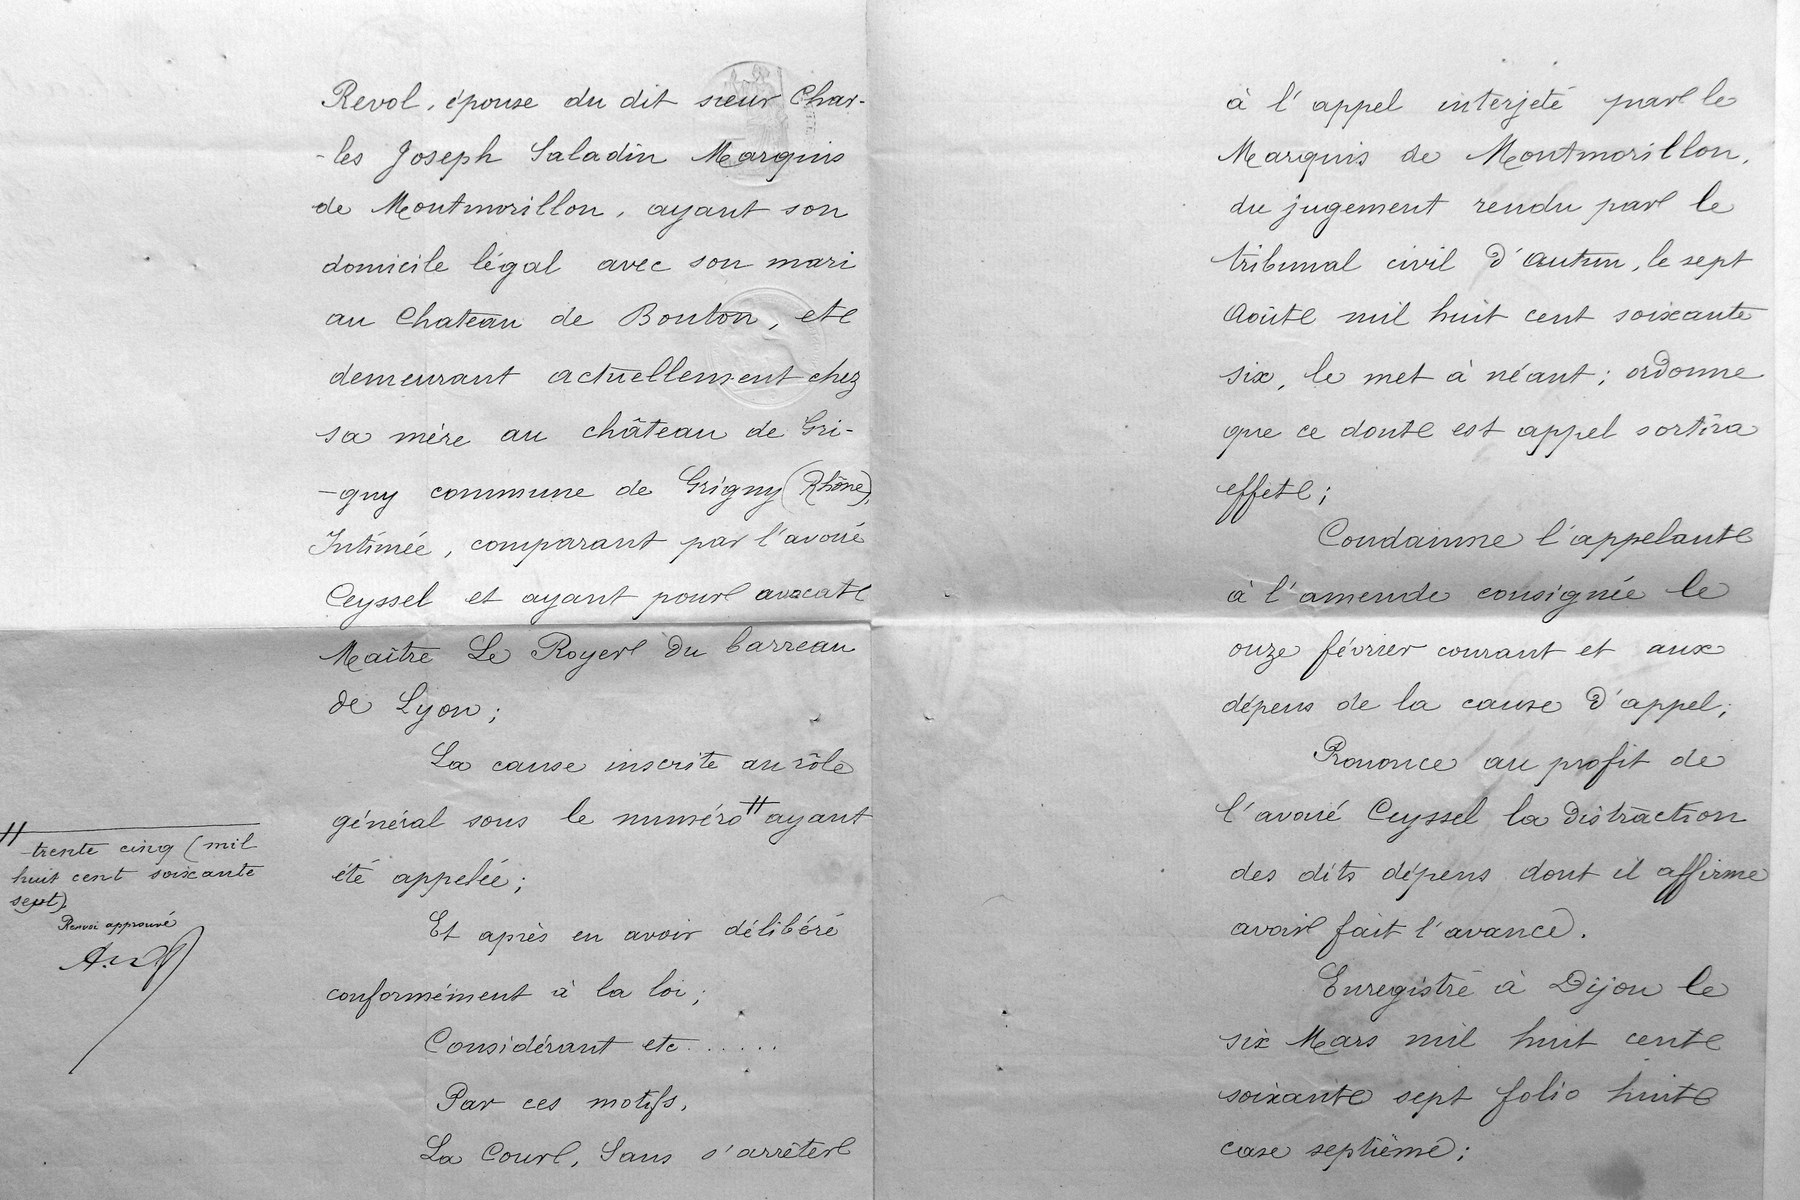 Revol, épouse du dit sieur Char-
-les Joseph Saladin Marquis
de Montmorillon, ayant son
domicile légal avec son mari
au Chateau de Bouton, et
demeurant actuellement chez
sa mère au château de Gri-
-gny commune de Grigny (Rhône),
Intimée, comparant par l'avoué
Ceyssel et ayant pour avocat
Maître Le Royer du barreau
de Lyon;
La cause inscrite au rôle
général sous le numéro # ayant
été appelée;
Et après en avoir délibéré
conformément à la loi;
Considérant etc......
Par ces motifs,
La Cour, Sans s'arrêter
# trente cinq (mil
huit cent soixante
sept).
Renvoi approuvé
à l'appel interjeté par le
Marquis de Montmorillon,
du jugement rendu par le
tribunal civil d'autun, le sept
Août mil huit cent soixante
six, le met à néant; ordonne
que ce dont est appel sortira
effet;
Condamne l'appelant
à l'amende consignée le
onze février courant et aux
dépens de la cause d'appel;
Prononce au profit de
l'avoué Ceyssel la distraction
des dits dépens dont il affirme
avoir fait l'avance.
Enregistré à Dijon le
six Mars mil huit cent
soixante sept folio huit
case septième;